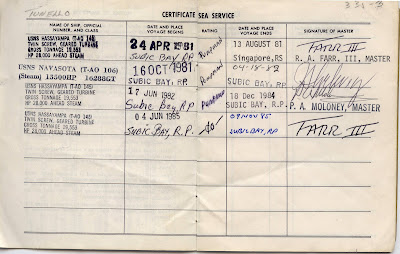 TUNELLO
CERTIFICATE SEA SERVICE
NAME OF SHIP, OFFICIAL NUMBER, AND CLASS
DATE AND PLACE VOYAGE BEGINS
RATING
DATE AND PLACE VOYAGE ENDS
SIGNATURE OF MASTER
USNS HASSAYAMPA (T-AO 145)
TWIN SCREW, GEARED TURBINE
GROSS TONNAGE 19,553
HP 28,000 AHEAD STEAM
24 APR 1981
SUBIC BAY, RP
13 AUGUST 81
Singapore, RS
FARR III
R. A. FARR, III, MASTER
USNS NAVASOTA (T-AO 106)
(Steam) 13500HP
16 OCT 1981
SUBIC BAY RP
04-18-82
SUBIC BAY, RP
USNS HASSAYAMPA (T-AO 145)
TWIN SCREW, GEARED TURBINE
GROSS TONNAGE 19,553
HP 28,000 AHEAD STEAM
17 JUN 1982
Subic Bay, RP
18 Dec 1984
SUBIC BAY, R.P.
P. A. MOLONEY, MASTER
USNS HASSAYAMPA (T-AO 145)
TWIN SCREW, GEARED TURBINE
GROSS TONNAGE 19,553
HP 28,000 AHEAD STEAM
04 JUN 1985
SUBIC BAY, R.P.
07 NOV 85
SUBIC BAY, RP
FARR III